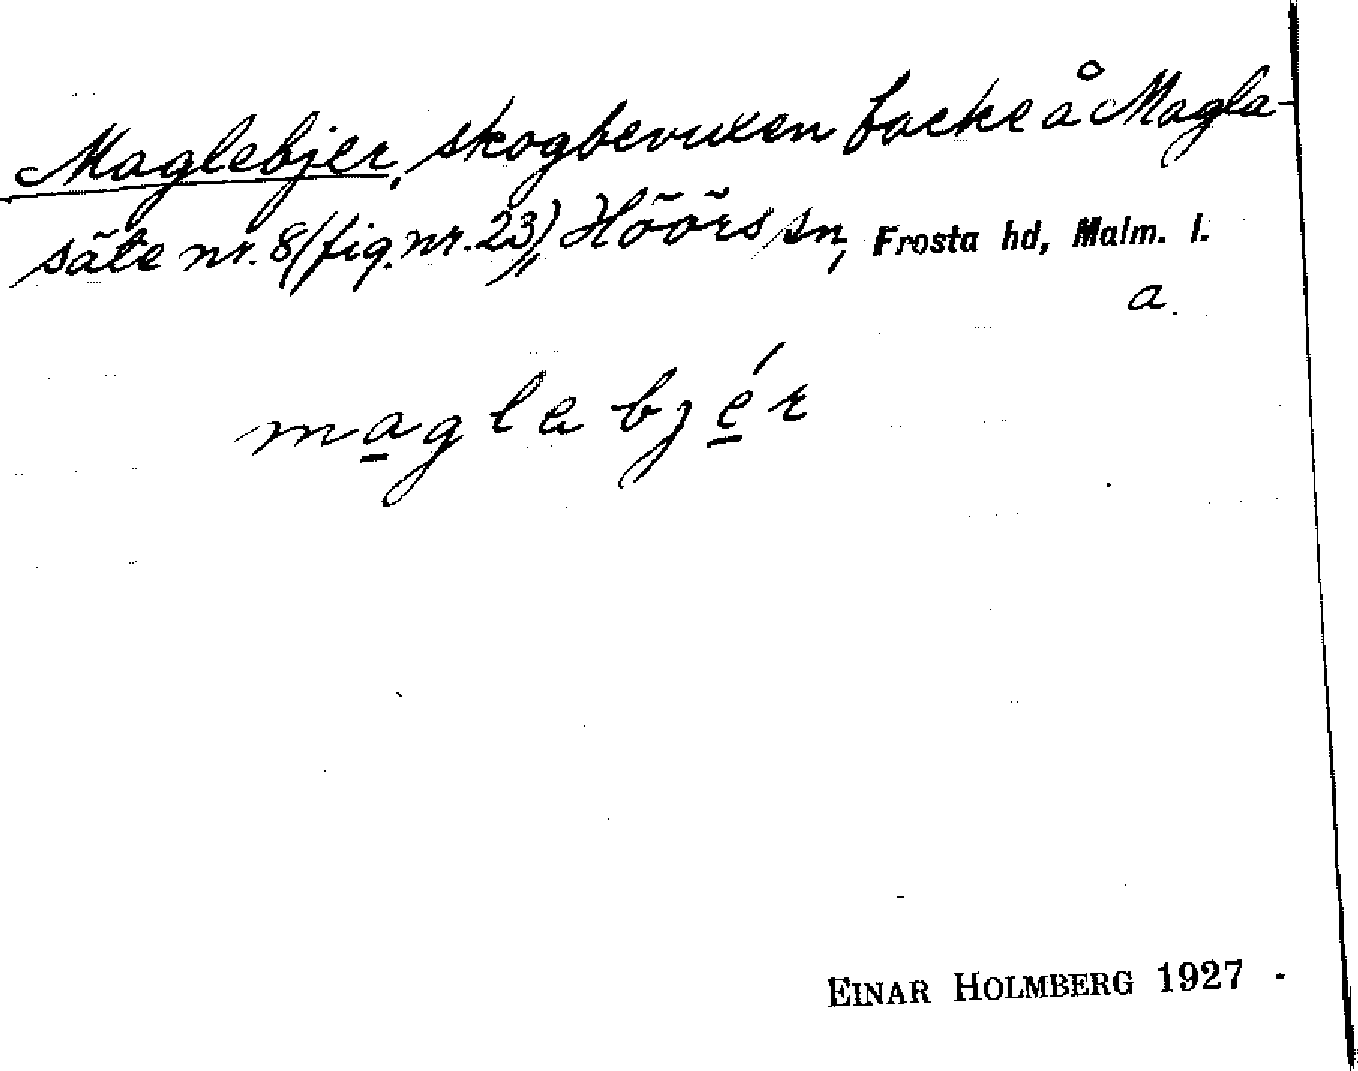 Maglebjer, skogbevuxen backe å Magla-
säte nr. 8 (fig. nr. 23), Höörs sn, Frosta hd, Malm. l.
a.
maglabjér
EINAR HOLMBERG 1927